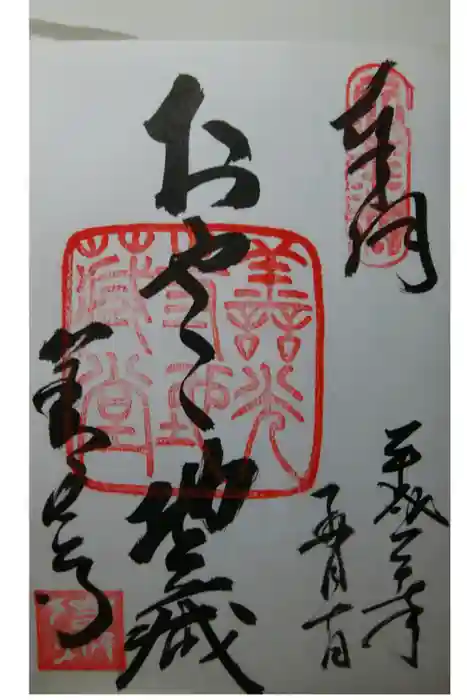 奉拝
平成二十年
五月十日
おやこ地蔵
善光寺
善光
寺地
蔵堂